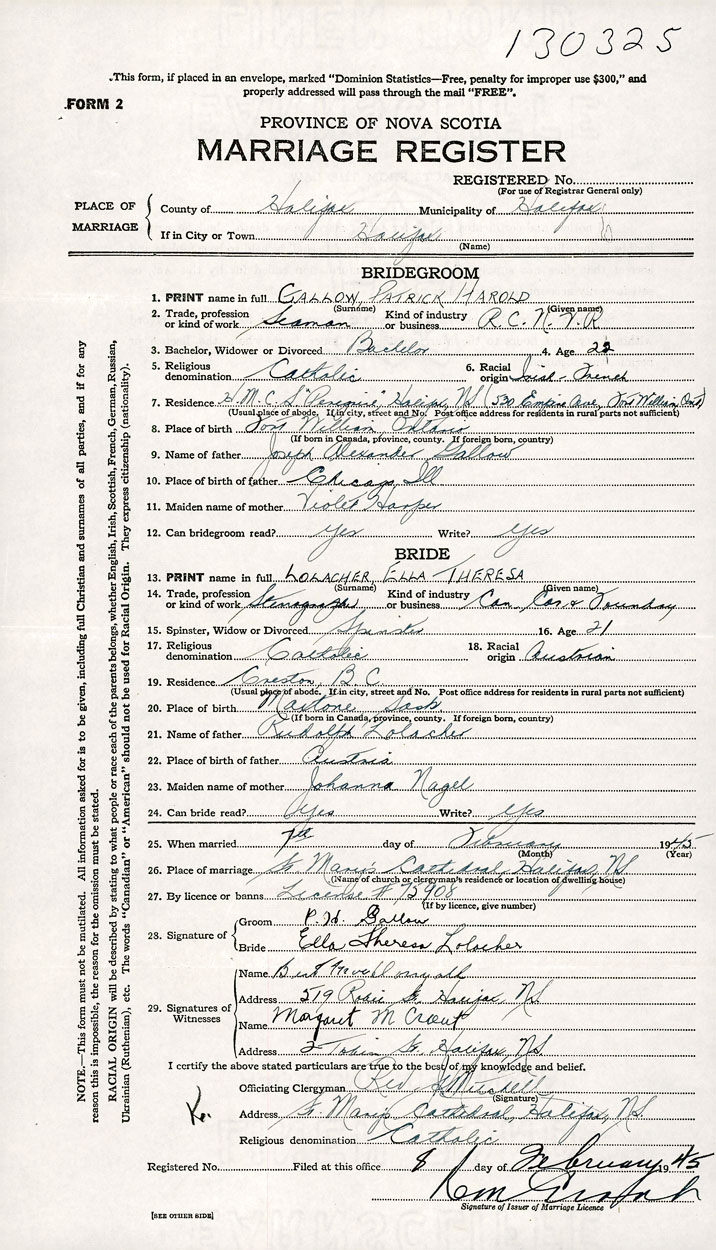 130325
This form, if placed in an envelope, marked "Dominion Statistics—Free, penalty for improper use $300," and
properly addressed will pass through the mail "FREE".
FORM 2
PROVINCE OF NOVA SCOTIA
MARRIAGE REGISTER
REGISTERED No.
(For use of Registrar General only)
PLACE OF MARRIAGE
County of Halifax Municipality of Halifax
If in City or Town Halifax
(Name)
BRIDEGROOM
1. PRINT name in full GALLOW, PATRICK HAROLD
(Surname) (Given name)
2. Trade, profession or kind of work Seaman Kind of industry or business R.C.N.V.R
3. Bachelor, Widower or Divorced Bachelor 4. Age 22
5. Religious denomination Catholic 6. Racial origin Irish-French
7. Residence H.M.C.S. "Peregrine" Halifax, NS (530 Empire Ave, Fort William, Ont)
(Usual place of abode. If in city, street and No. Post office address for residents in rural parts not sufficient)
8. Place of birth Fort William, Ontario
(If born in Canada, province, county. If foreign born, country)
9. Name of father Joseph Alexander Gallow
10. Place of birth of father Chicago, Ill
11. Maiden name of mother Violet Harper
12. Can bridegroom read? yes Write? yes
BRIDE
13. PRINT name in full LOLACHER, ELLA THERESA
(Surname) (Given name)
14. Trade, profession or kind of work Stenographer Kind of industry or business Can Car & Foundry
15. Spinster, Widow or Divorced Spinster 16. Age 21
17. Religious denomination Catholic 18. Racial origin Austrian
19. Residence Creston, B.C.
(Usual place of abode. If in city, street and No. Post office address for residents in rural parts not sufficient)
20. Place of birth Maxtone Sask
(If born in Canada, province, county. If foreign born, country)
21. Name of father Rudolph Lolacher
22. Place of birth of father Austria
23. Maiden name of mother Johanna Nagel
24. Can bride read? Yes Write? yes
25. When married 7th day of February 1945
(Month) (Year)
26. Place of marriage St Mary's Cathedral, Halifax, NS
(Name of church or clergyman's residence or location of dwelling house)
27. By licence or banns License # 75908
(If by licence, give number)
28. Signature of
Groom P.H. Gallow
Bride Ella Theresa Lolacher
29. Signatures of Witnesses
Name
Address 519 St. Halifax, NS
Name Margaret M
Address 2 Tobin St. Halifax, NS
I certify the above stated particulars are true to the best of my knowledge and belief.
Officiating Clergyman Rev Mitchell
(Signature)
Address St Mary's Cathedral, Halifax, NS
Religious denomination Catholic
Registered No. Filed at this office 8 day of February 1945
Signature of Issuer of Marriage Licence
[SEE OTHER SIDE]
NOTE.—This form must not be mutilated. All information asked for is to be given, including full Christian and surnames of all parties, and if for any
reason this is impossible, the reason for the omission must be stated.
RACIAL ORIGIN will be described by stating to what people or race each of the parents belongs, whether English, Irish, Scottish, French, German, Russian,
Ukrainian (Ruthenian), etc. The words "Canadian" or "American" should not be used for Racial Origin. They express citizenship (nationality).